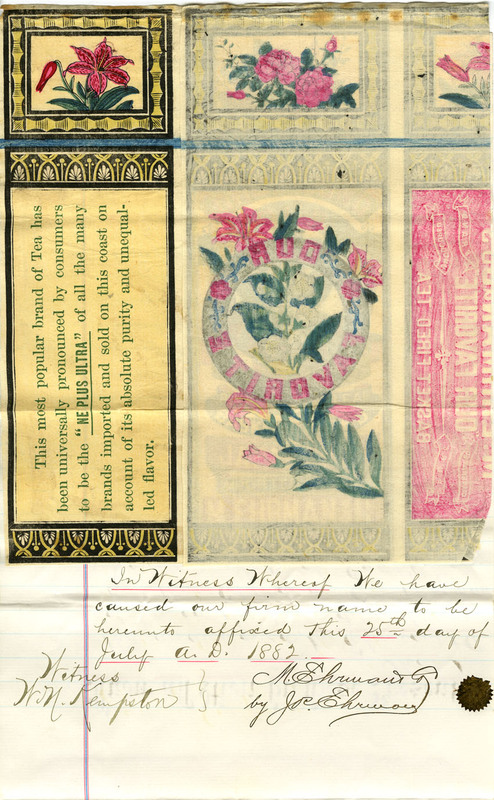 This most popular brand of Tea has
been universally pronounced by consumers
to be the "NE PLUS ULTRA" of all the many
brands imported and sold on this coast on
account of its absolute purity and unequal-
led flavor.
OUR
FAVORITE
OUR FAVORITE
BASKET FIRED TEA
In Witness Whereof We have
caused our firm name to be
hereunto affixed this 25th day of
July A. D. 1882.
Witness
W. H. Kempston
M Ehrman
by Js. Ehrman